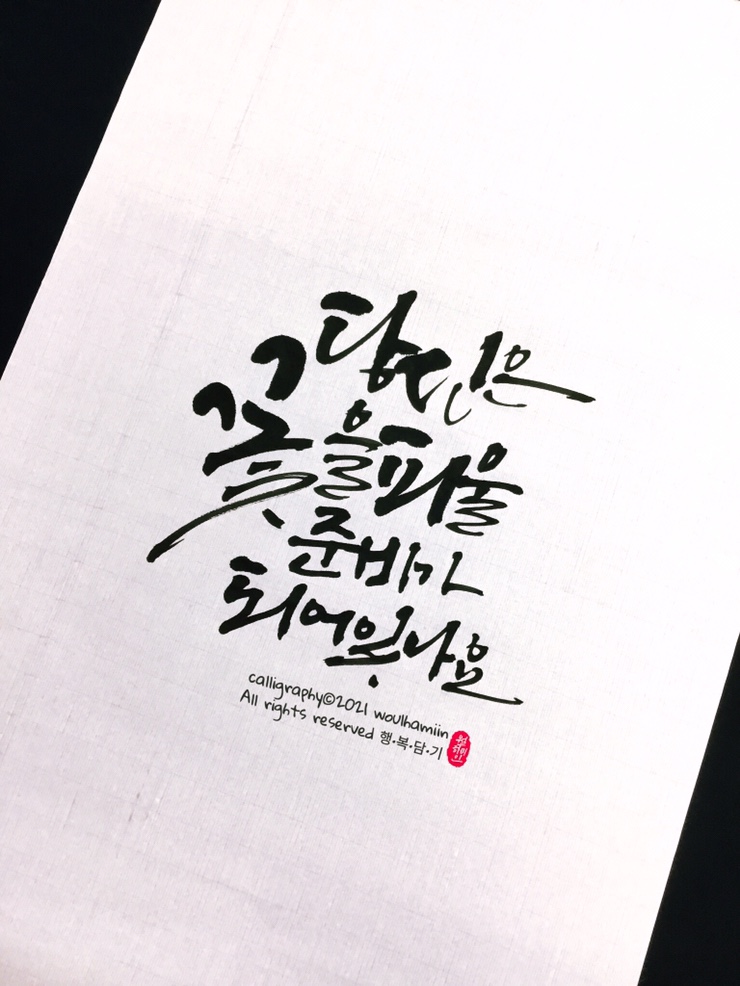 당신은
꽃을피울
준비가
되어있나요
calligraphy©2021 woulhamiin
All rights reserved 행·복·담·기